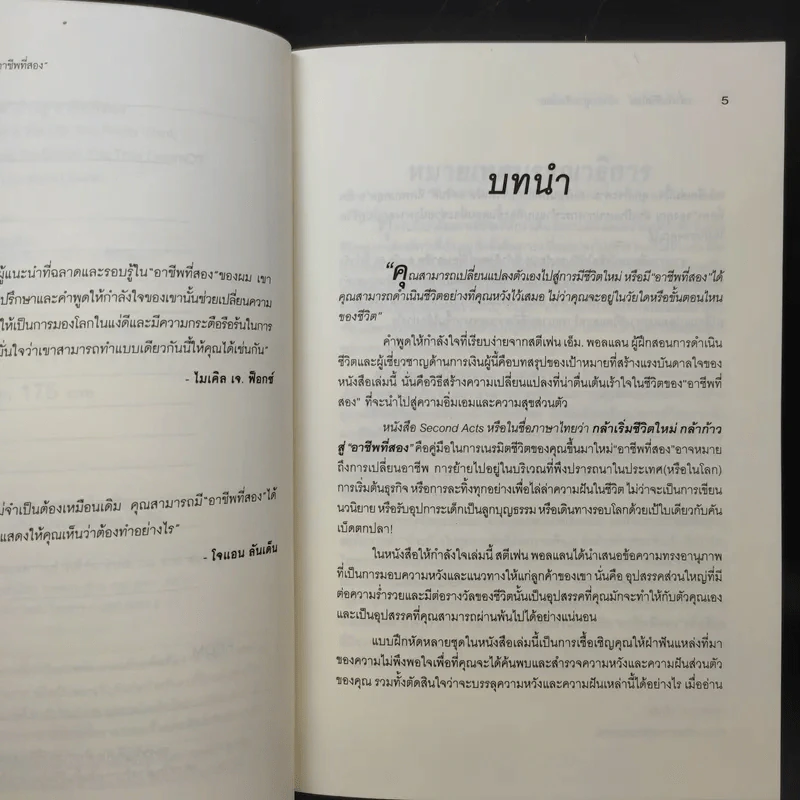 อาชีพที่สอง"
ผู้แนะนำที่ฉลาดและรอบรู้ใน"อาชีพที่สอง"ของผม เขา
ปรึกษาและคำพูดให้กำลังใจของเขานั้นช่วยเปลี่ยนความ
ให้เป็นการมองโลกในแง่ดีและมีความกระตือรือร้นในการ
มั่นใจว่าเขาสามารถทำแบบเดียวกันนี้ให้คุณได้เช่นกัน"
- ไมเคิล เจ. ฟ็อกซ์
ไม่จำเป็นต้องเหมือนเดิม คุณสามารถมี"อาชีพที่สอง"ได้
แสดงให้คุณเห็นว่าต้องทำอย่างไร"
- โจแอน ลันเด็น
5
บทนำ
"คุณสามารถเปลี่ยนแปลงตัวเองไปสู่การมีชีวิตใหม่ หรือมี"อาชีพที่สอง"ได้
คุณสามารถดำเนินชีวิตอย่างที่คุณหวังไว้เสมอ ไม่ว่าคุณจะอยู่ในวัยใดหรือขั้นตอนไหน
ของชีวิต"
คำพูดให้กำลังใจที่เรียบง่ายจากสตีเฟน เอ็ม. พอลแลน ผู้ฝึกสอนการดำเนิน
ชีวิตและผู้เชี่ยวชาญด้านการเงินผู้นี้คือบทสรุปของเป้าหมายที่สร้างแรงบันดาลใจของ
หนังสือเล่มนี้ นั่นคือวิธีสร้างความเปลี่ยนแปลงที่น่าตื่นเต้นเร้าใจในชีวิตของ"อาชีพที่
สอง" ที่จะนำไปสู่ความอิ่มเอมและความสุขส่วนตัว
หนังสือ Second Acts หรือในชื่อภาษาไทยว่า กล้าเริ่มชีวิตใหม่ กล้าก้าว
สู่ "อาชีพที่สอง" คือคู่มือในการเนรมิตชีวิตของคุณขึ้นมาใหม่"อาชีพที่สอง"อาจหมาย
ถึงการเปลี่ยนอาชีพ การย้ายไปอยู่ในบริเวณที่พึงปรารถนาในประเทศ(หรือในโลก)
การเริ่มต้นธุรกิจ หรือการละทิ้งทุกอย่างเพื่อไล่ล่าความฝันในชีวิต ไม่ว่าจะเป็นการเขียน
นวนิยาย หรือรับอุปการะเด็กเป็นลูกบุญธรรม หรือเดินทางรอบโลกด้วยเป้ใบเดียวกับคัน
เบ็ดตกปลา!
ในหนังสือให้กำลังใจเล่มนี้ สตีเฟน พอลแลนได้นำเสนอข้อความทรงอานุภาพ
ที่เป็นการมอบความหวังและแนวทางให้แก่ลูกค้าของเขา นั่นคือ อุปสรรคส่วนใหญ่ที่มี
ต่อความร่ำรวยและมีต่อรางวัลของชีวิตนั้นเป็นอุปสรรคที่คุณมักจะทำให้กับตัวคุณเอง
และเป็นอุปสรรคที่คุณสามารถผ่านพ้นไปได้อย่างแน่นอน
แบบฝึกหัดหลายชุดในหนังสือเล่มนี้เป็นการเชื้อเชิญคุณให้ฝ่าฟันแหล่งที่มา
ของความไม่พึงพอใจเพื่อที่คุณจะได้ค้นพบและสำรวจความหวังและความฝันส่วนตัว
ของคุณ รวมทั้งตัดสินใจว่าจะบรรลุความหวังและความฝันเหล่านี้ได้อย่างไร เมื่ออ่าน